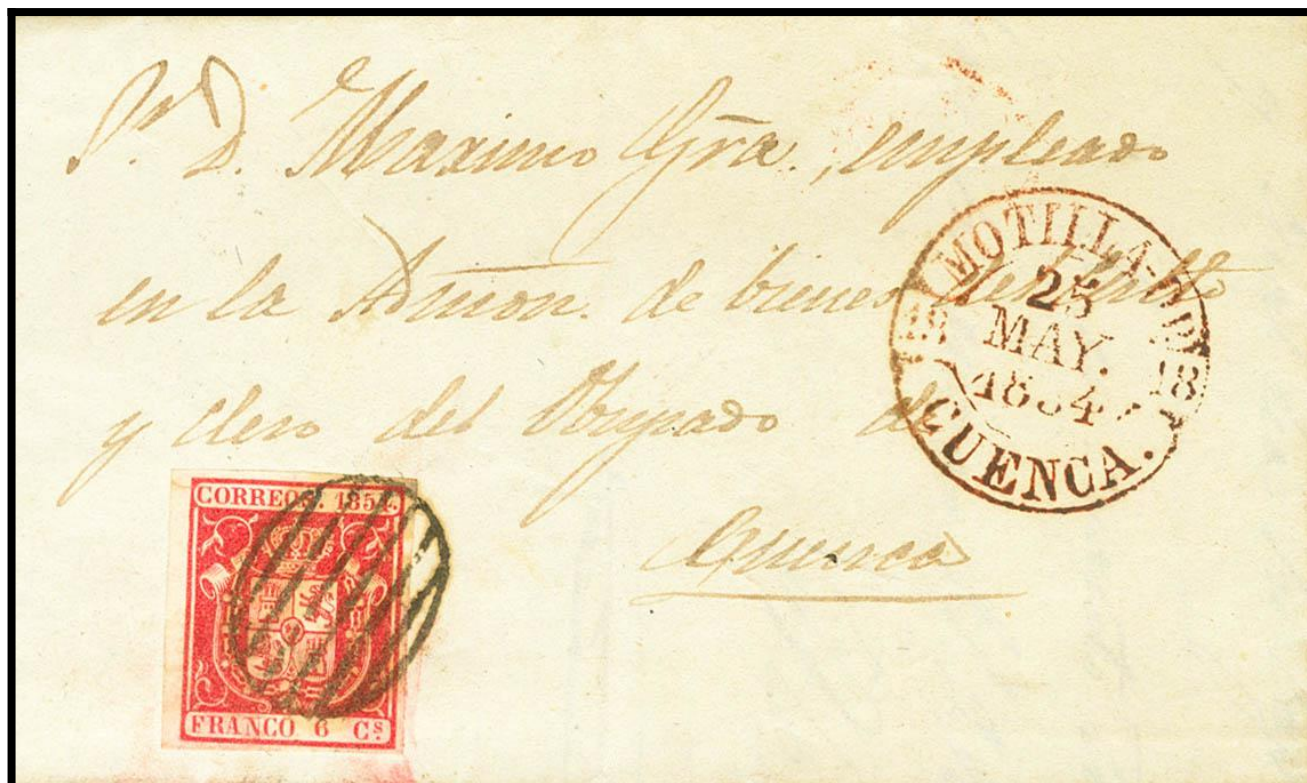 Sr. D. Maximo Gra., empleado
en la Admon. de bienes del Culto
y clero del Obispado de
Cuenca
MOTILLA-D-P
18 18
25
MAY.
1854
CUENCA.
CORREOS. 1854.
FRANCO 6 Cs.